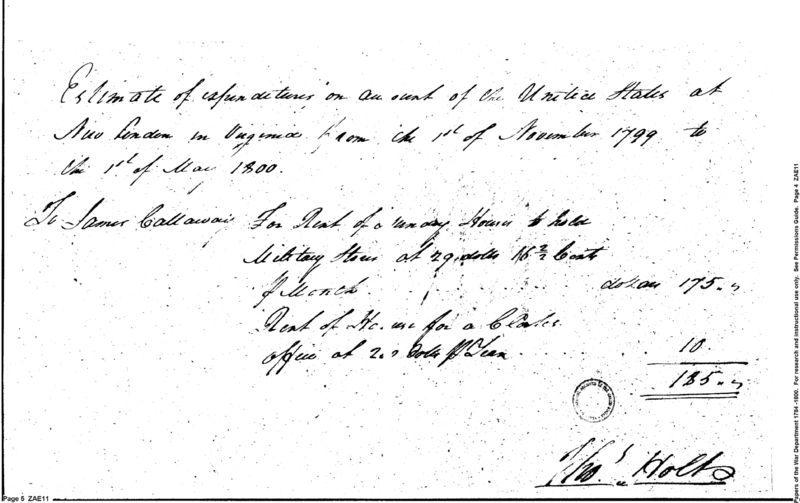 Estimate of expenditures on account of the United States at
New London in Virginia From the 1st of November 1799 to
the 1st of May 1800.
To James Callaway For Rent of Sundry Houses to hold
Military Stores at 29 dolls 16 2/3 Cents
⅌ Month dollars 175.〃
Rent of House for a Clerks
office at 20 dolls ⅌ Year 10.
185.〃
Thos Holt
Page 5 ZAE11
Papers of the War Department 1784-1800. For research and instructional use only. See Permissions Guide. Page 4 ZAE11